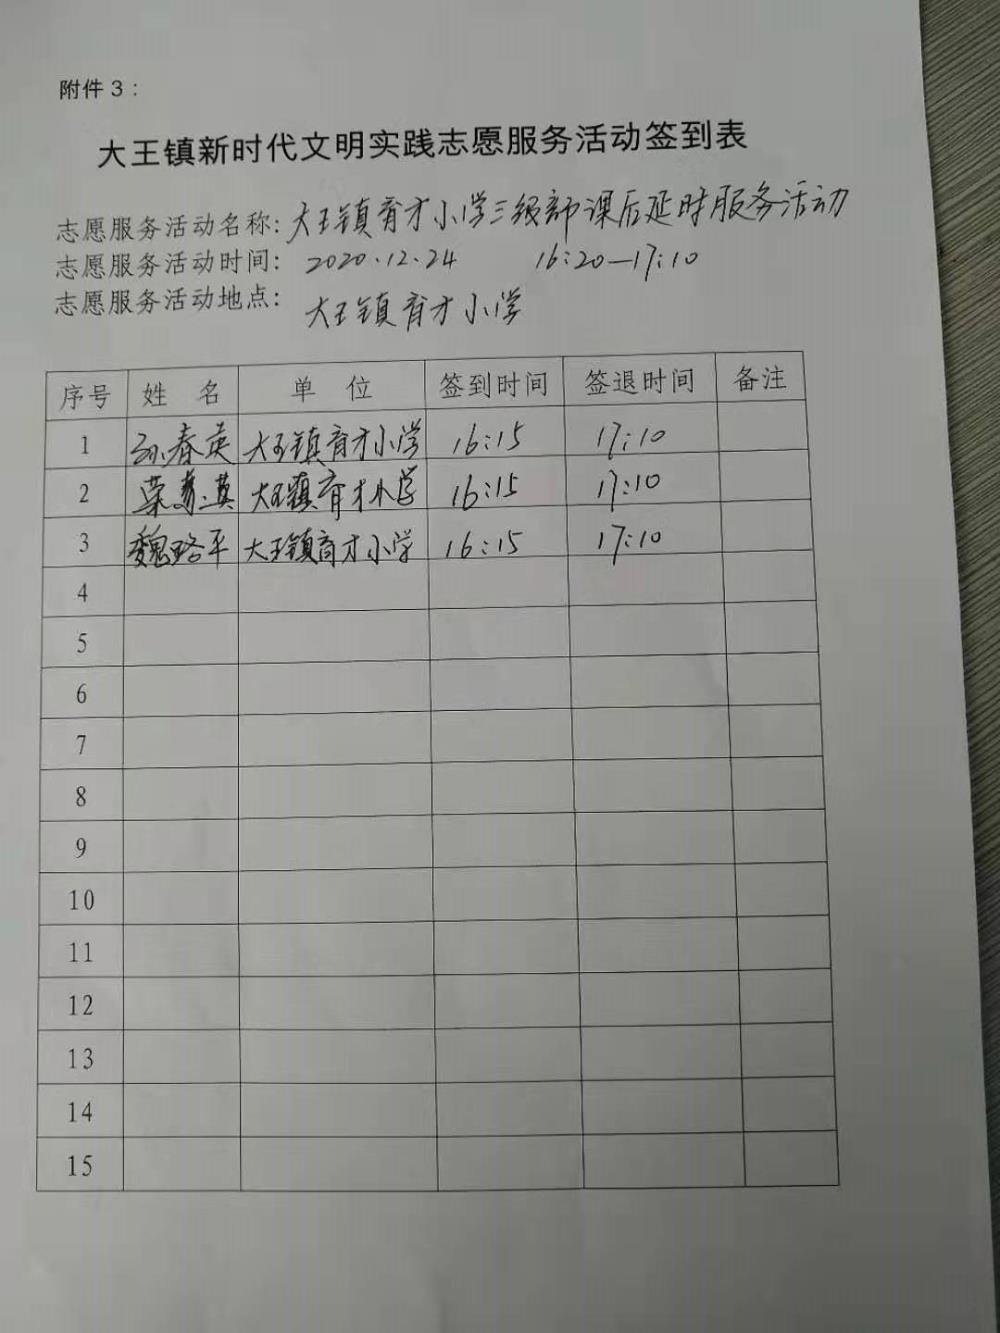 附件3：
大王镇新时代文明实践志愿服务活动签到表
志愿服务活动名称: 大王镇育才小学三级部课后延时服务活动
志愿服务活动时间: 2020.12.24 16:20—17:10
志愿服务活动地点: 大王镇育才小学
序号 姓 名 单 位 签到时间 签退时间 备注
1 孙春英 大王镇育才小学 16:15 17:10
2 荣 英 大王镇育才小学 16:15 17:10
3 魏 平 大王镇育才小学 16:15 17:10
4
5
6
7
8
9
10
11
12
13
14
15